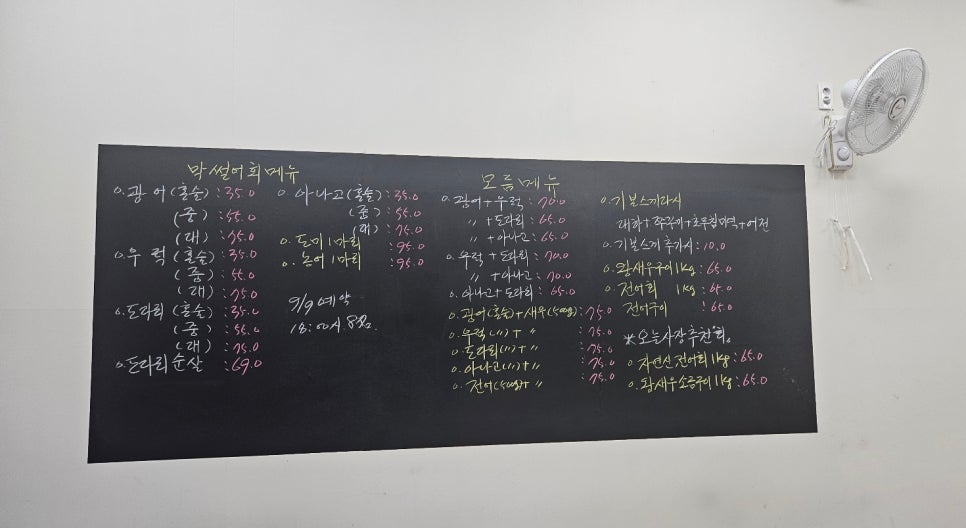 막썰어회메뉴
o. 광 어 (혼술) : 35.0
(중) : 55.0
(대) : 75.0
o. 우 럭 (혼술) : 35.0
(중) : 55.0
(대) : 75.0
o. 도다리 (혼술) : 35.0
(중) : 55.0
(대) : 75.0
o. 도다리순살 : 69.0
o. 아나고(혼술) : 35.0
(중) : 55.0
(대) : 75.0
o. 도미 1마리 : 95.0
o. 농어 1마리 : 95.0
9/9 예약
모듬메뉴
o. 광어 + 우럭 : 70.0
〃 + 도다리 : 65.0
〃 + 아나고 : 65.0
o. 우럭 + 도다리 : 70.0
〃 + 아나고 : 70.0
o. 아나고 + 도다리 : 65.0
o. 광어(혼술) + 새우(500g) : 75.0
o. 우럭(〃) + 〃 : 75.0
o. 도다리(〃) + 〃 : 75.0
o. 아나고(〃) + 〃 : 75.0
o. 전어(500g) + 〃 : 75.0
o. 기본스끼다시
대하 + 쭈꾸미 + 초무침미역 + 어전
o. 기본스끼 추가시 : 10.0
o. 왕새우구이 1kg : 65.0
o. 전어회 1kg : 65.0
전어구이 : 65.0
※ 오늘사장추천회.
o. 자연산전어회 1kg : 65.0
o. 왕새우소금구이 1kg : 65.0